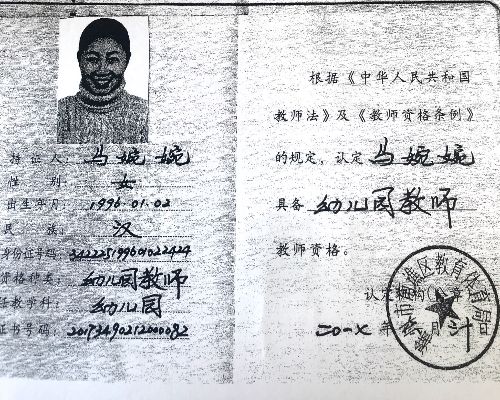 持证人: 马婉婉
性 别: 女
出生年月: 1996.01.02
民 族: 汉
身份证号码: 342225199601022424
资格种类: 幼儿园教师
任教学科: 幼儿园
证书号码: 20173490212000082
根据《中华人民共和国
教师法》及《教师资格条例》
的规定, 认定 马婉婉
具备 幼儿园教师
教师资格。
二〇一七 年 月
区教育体育局